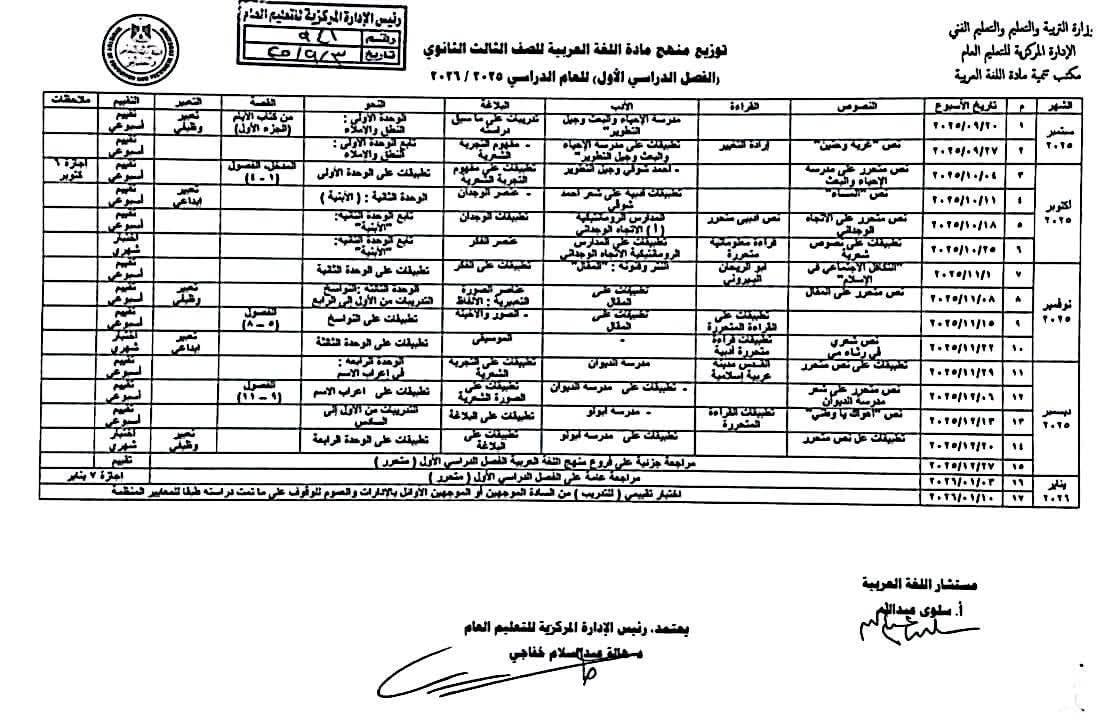 وزارة التربية والتعليم والتعليم الفني
الإدارة المركزية للتعليم العام
مكتب تنمية مادة اللغة العربية
رئيس الإدارة المركزية للتعليم العام
رقم ٩٤١
تاريخ ٢٥/٩/٣
توزيع منهج مادة اللغة العربية للصف الثالث الثانوي
(الفصل الدراسي الأول) للعام الدراسي ٢٠٢٥ / ٢٠٢٦
الشهر م تاريخ الأسبوع النصوص القراءة الأدب البلاغة النحو القصة التعبير التقييم ملاحظات
سبتمبر ٢٠٢٥
١ ٢٠٢٥/٠٩/٢٠ مدرسة الإحياء والبعث وجيل التطوير" تدريبات على ما سبق دراسته الوحدة الأولى : النطق والإملاء من كتاب الأيام (الجزء الأول) تعبير وظيفي تقييم أسبوعي
٢ ٢٠٢٥/٠٩/٢٧ نص "غربة وحنين" إرادة التغيير تطبيقات على مدرسة الإحياء والبعث وجيل التطوير" - مفهوم التجربة الشعرية تابع الوحدة الأولى : النطق والاملاء تقييم أسبوعي
أكتوبر ٢٠٢٥
٣ ٢٠٢٥/١٠/٠٤ نص متحرر على مدرسة الإحياء والبعث - احمد شوقي وجيل التطوير تطبيقات على مفهوم التجربة الشعرية تطبيقات على الوحدة الأولى المدخل، الفصول (١ - ٤) تقييم أسبوعي اجازة ٦ أكتوبر
٤ ٢٠٢٥/١٠/١١ نص "المساء" تطبيقات أدبية على شعر أحمد شوقي - عنصر الوجدان الوحدة الثانية : ( الأبنية ) تعبير ابداعي تقييم أسبوعي
٥ ٢٠٢٥/١٠/١٨ نص متحرر على الاتجاه الوجداني نص أدبي متحرر المدارس الرومانتيكية (أ) الاتجاه الوجداني تطبيقات الوجدان تابع الوحدة الثانية: "الأبنية" تقييم أسبوعي
٦ ٢٠٢٥/١٠/٢٥ تطبيقات على نصوص شعرية قراءة معلوماتية متحررة تطبيقات على المدارس الرومانتيكية الاتجاه الوجداني عنصر الفكر تابع الوحدة الثانية: "الأبنية" اختبار شهري
نوفمبر ٢٠٢٥
٧ ٢٠٢٥/١١/١ "التكافل الاجتماعي في الإسلام" أبو الريحان البيروني النثر وفنونه : "المقال" تطبيقات على الفكر تطبيقات على الوحدة الثانية تقييم أسبوعي
٨ ٢٠٢٥/١١/٠٨ نص متحرر على المقال تطبيقات على المقال عناصر الصورة التعبيرية : الألفاظ الوحدة الثالثة :النواسخ التدريبات من الأول إلى الرابع تعبير وظيفي تقييم أسبوعي
٩ ٢٠٢٥/١١/١٥ تطبيقات على القراءة المتحررة تطبيقات على المقال - الصور والأخيلة تطبيقات على النواسخ الفصول (٥ - ٨) تقييم أسبوعي
١٠ ٢٠٢٥/١١/٢٢ نص شعري في رثاء مي تطبيقات قراءة متحررة أدبية - الموسيقى تطبيقات على الوحدة الثالثة تعبير ابداعي اختبار شهري
ديسمبر ٢٠٢٥
١١ ٢٠٢٥/١١/٢٩ تطبيقات على نص متحرر القدس مدينة عربية إسلامية مدرسة الديوان تطبيقات على التجربة الشعرية الوحدة الرابعة: في إعراب الاسم تقييم أسبوعي
١٢ ٢٠٢٥/١٢/٠٦ نص متحرر على شعر مدرسة الديوان - تطبيقات على مدرسة الديوان تطبيقات على الصورة الشعرية تطبيقات على اعراب الاسم الفصول (٩ - ١١) تقييم أسبوعي
١٣ ٢٠٢٥/١٢/١٣ نص "أهواك يا وطني" تطبيقات القراءة المتحررة - مدرسة أبولو تطبيقات على البلاغة التدريبات من الأول إلى السادس تقييم أسبوعي
١٤ ٢٠٢٥/١٢/٢٠ تطبيقات على نص متحرر تطبيقات على مدرسة أبولو تطبيقات على البلاغة تطبيقات على الوحدة الرابعة تعبير وظيفي اختبار شهري
١٥ ٢٠٢٥/١٢/٢٧ مراجعة جزئية على فروع منهج اللغة العربية الفصل الدراسي الأول ( متحرر ) تقييم
يناير ٢٠٢٦
١٦ ٢٠٢٦/٠١/٠٣ مراجعة عامة على الفصل الدراسي الأول ( متحرر ) اجازة ٧ يناير
١٧ ٢٠٢٦/٠١/١٠ اختبار تقييمي ( للتدريب ) من السادة الموجهين أو الموجهين الأوائل بالإدارات والعموم للوقوف على ما تمت دراسته طبقا للمعايير المنظمة
مستشار اللغة العربية
أ. سلوى عبدالله
يعتمد، رئيس الإدارة المركزية للتعليم العام
د. هالة عبدالسلام خفاجي